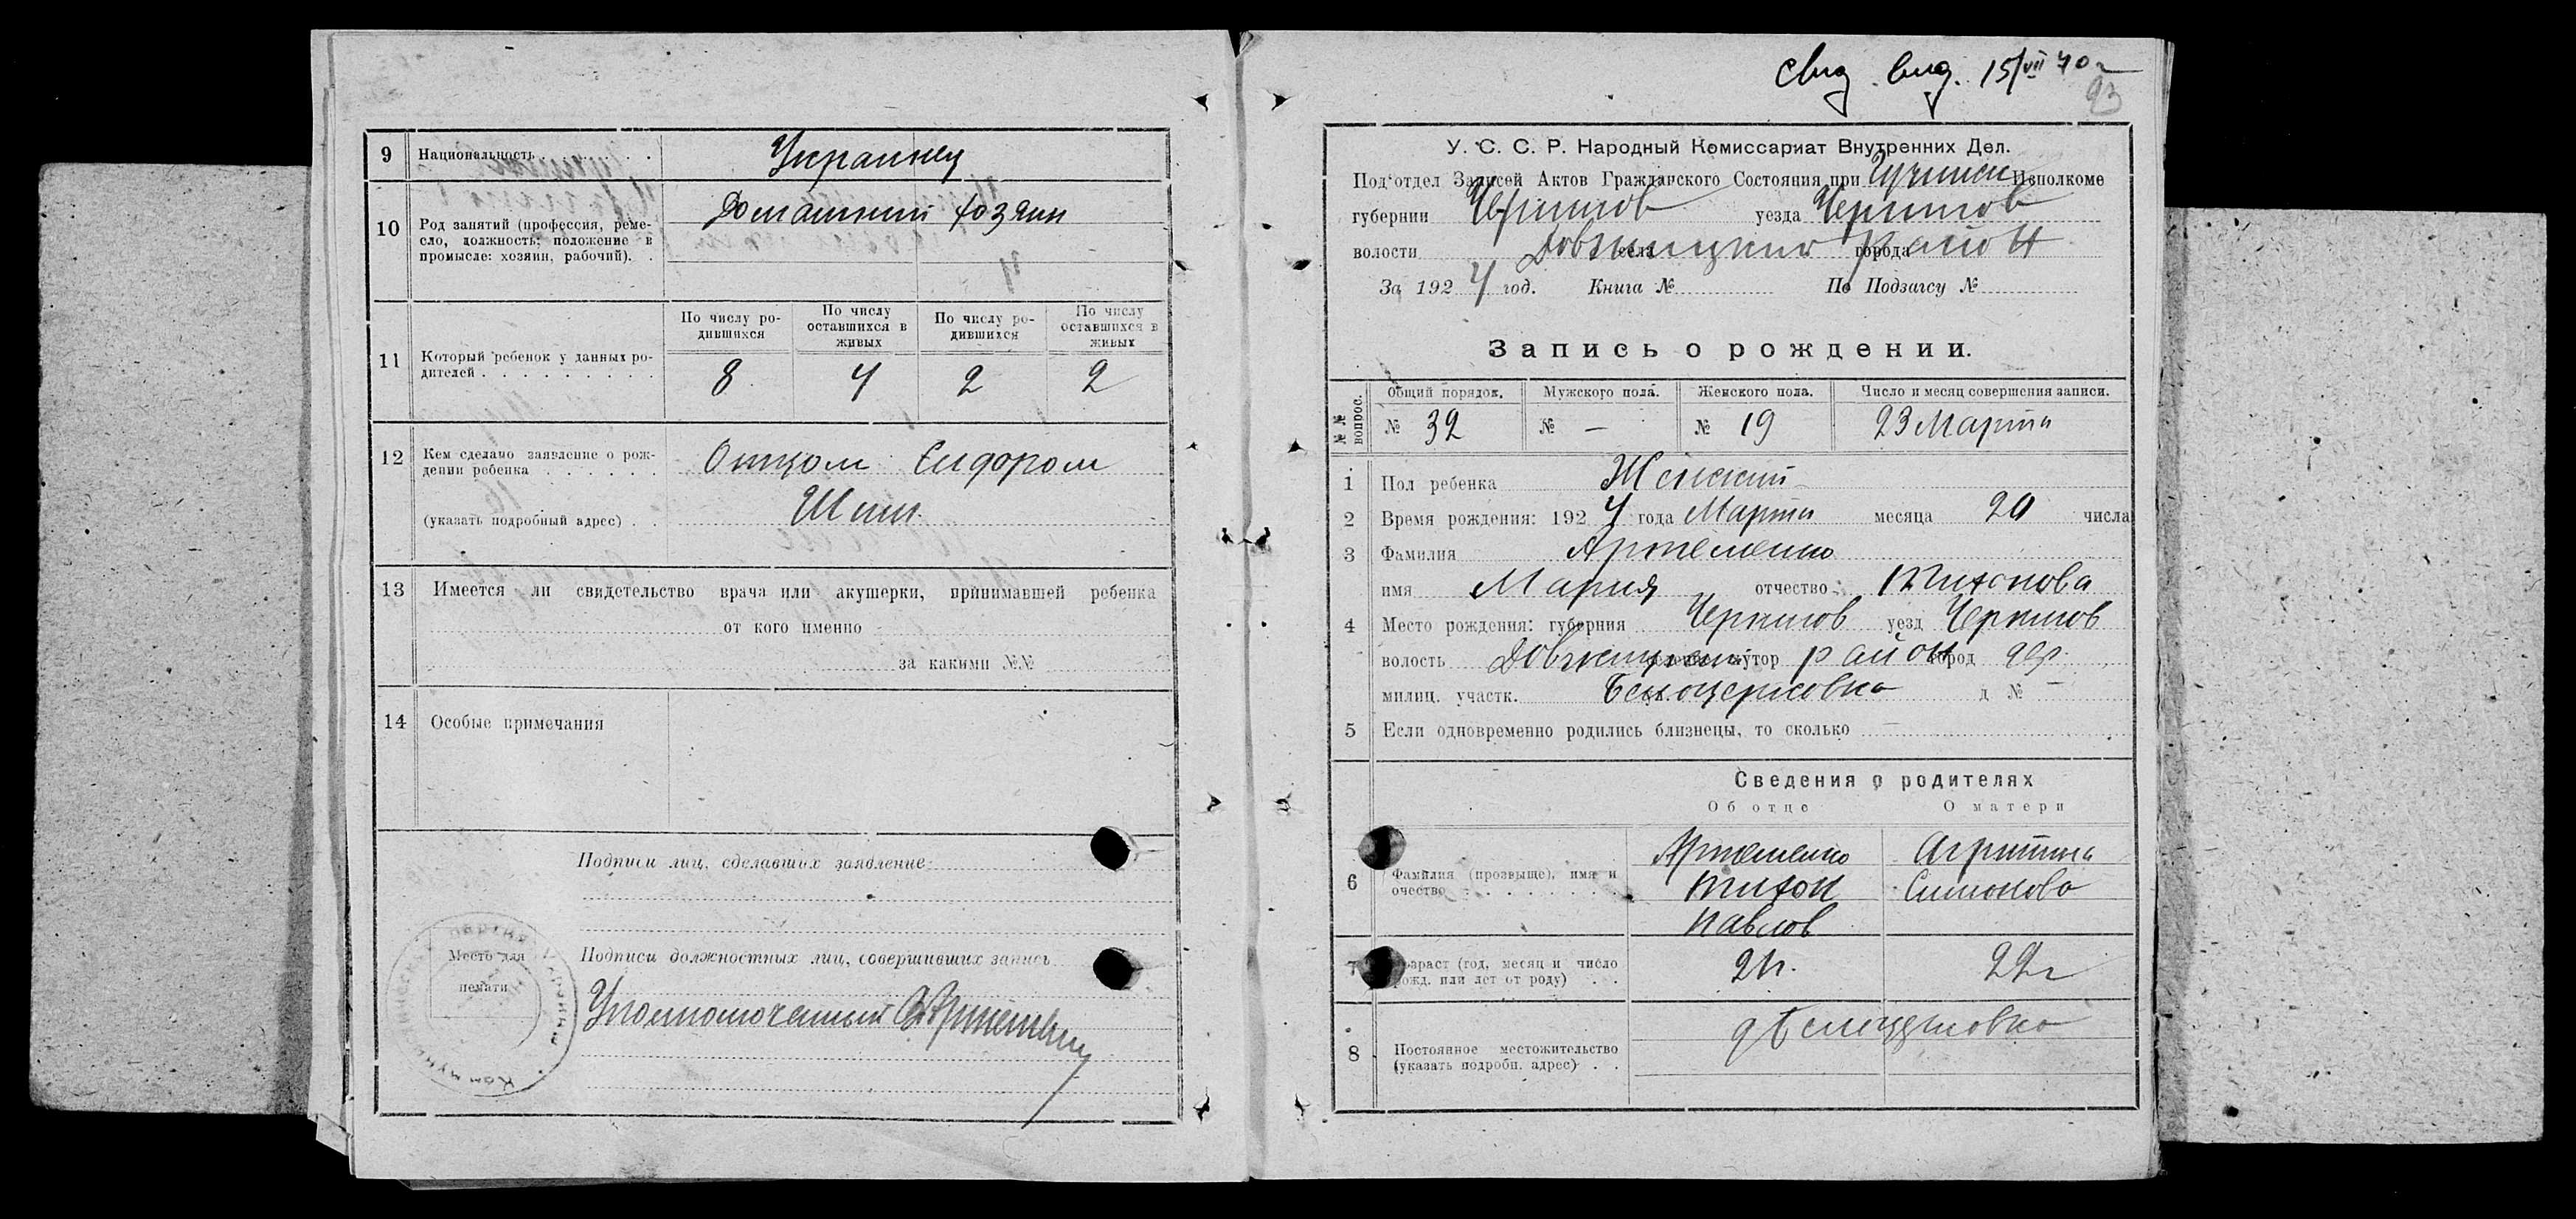 9 Национальность . . . . . . . . Украинец
10 Род занятий (профессия, реме-
сло, должность; положение в
промысле: хозяин, рабочий). . Домашний хозяин
По числу ро-
дившихся
По числу
оставшихся в
живых
По числу ро-
дившихся
По числу
оставшихся в
живых
11 Который ребенок у данных ро-
дителей . . . . . . . . . 8 4 2 2
12 Кем сделано заявление о рож-
дении ребенка . . . . . . Отцом Сидором
(указать подробный адрес) . .
13 Имеется ли свидетельство врача или акушерки, принимавшей ребенка
от кого именно
за какими №№
14 Особые примечания
Подписи лиц, сделавших заявление
Место для
печати
Подписи должностных лиц, совершивших запись
Уполномоченный
свид. выд. 15/VII 40 г
93
У. С. С. Р. Народный Комиссариат Внутренних Дел.
Под'отдел Записей Актов Гражданского Состояния при Исполкоме
губернии Чернигов уезда Чернигов
волости села города район
За 1924 год. Книга № По Подзагсу №
Запись о рождении.
№№ вопрос.
Общий порядок. Мужского пола. Женского пола. Число и месяц совершения записи.
№ 32 № — № 19 23 Марта
1 Пол ребенка Женский
2 Время рождения: 1924 года Марта месяца 20 числа
3 Фамилия Артеменко
имя Мария отчество Тихонова
4 Место рождения: губерния Чернигов уезд Чернигов
волость хутор район город дер.
милиц. участк. Белоцерковка д №
5 Если одновременно родились близнецы, то сколько —
Сведения о родителях
Об отце О матери
6 Фамилия (прозвыще), имя и
очество . . . . . . . .
Артеменко
Тихон
Павлов
Симонова
7 Возраст (год, месяц и число
рожд. или лет от роду) . . 22 г
8 Постоянное местожительство
(указать подробн. адрес) . .